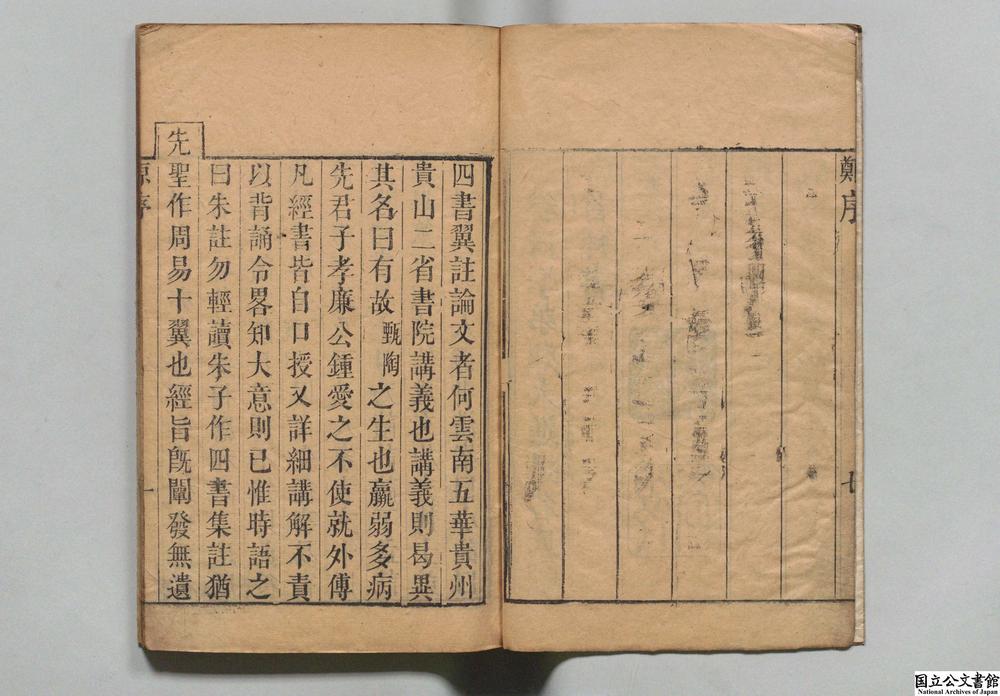 鄭序
七
四書翼註論文者何雲南五華貴州
貴山二省書院講義也講義則曷異
其名曰有故甄陶之生也羸弱多病
先君子孝廉公鍾愛之不使就外傅
凡經書皆自口授又詳細講解不責
以背誦令畧知大意則已惟時語之
曰朱註勿輕讀朱子作四書集註猶
先聖作周易十翼也經旨旣闡發無遺
序
一
国立公文書館
National Archives of Japan